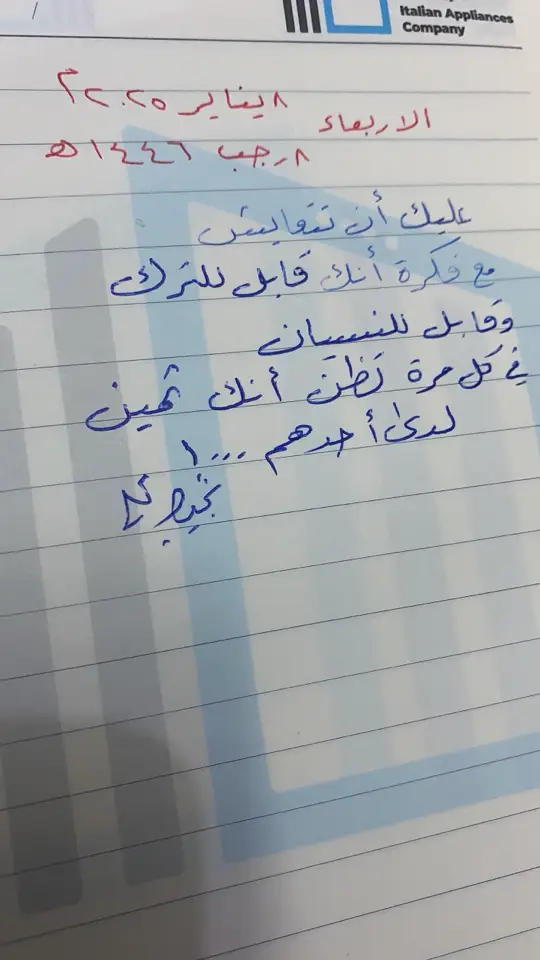 Italian Appliances
Company
٨ يناير ٢٠٢٥ م
الاربعاء
٨ رجب ١٤٤٦ هـ
عليك أن تتعايش
مع فكرة أنك قابل للترك
وقابل للنسيان
في كل مرة تظن أنك ثمين
لدى أحدهم ...!